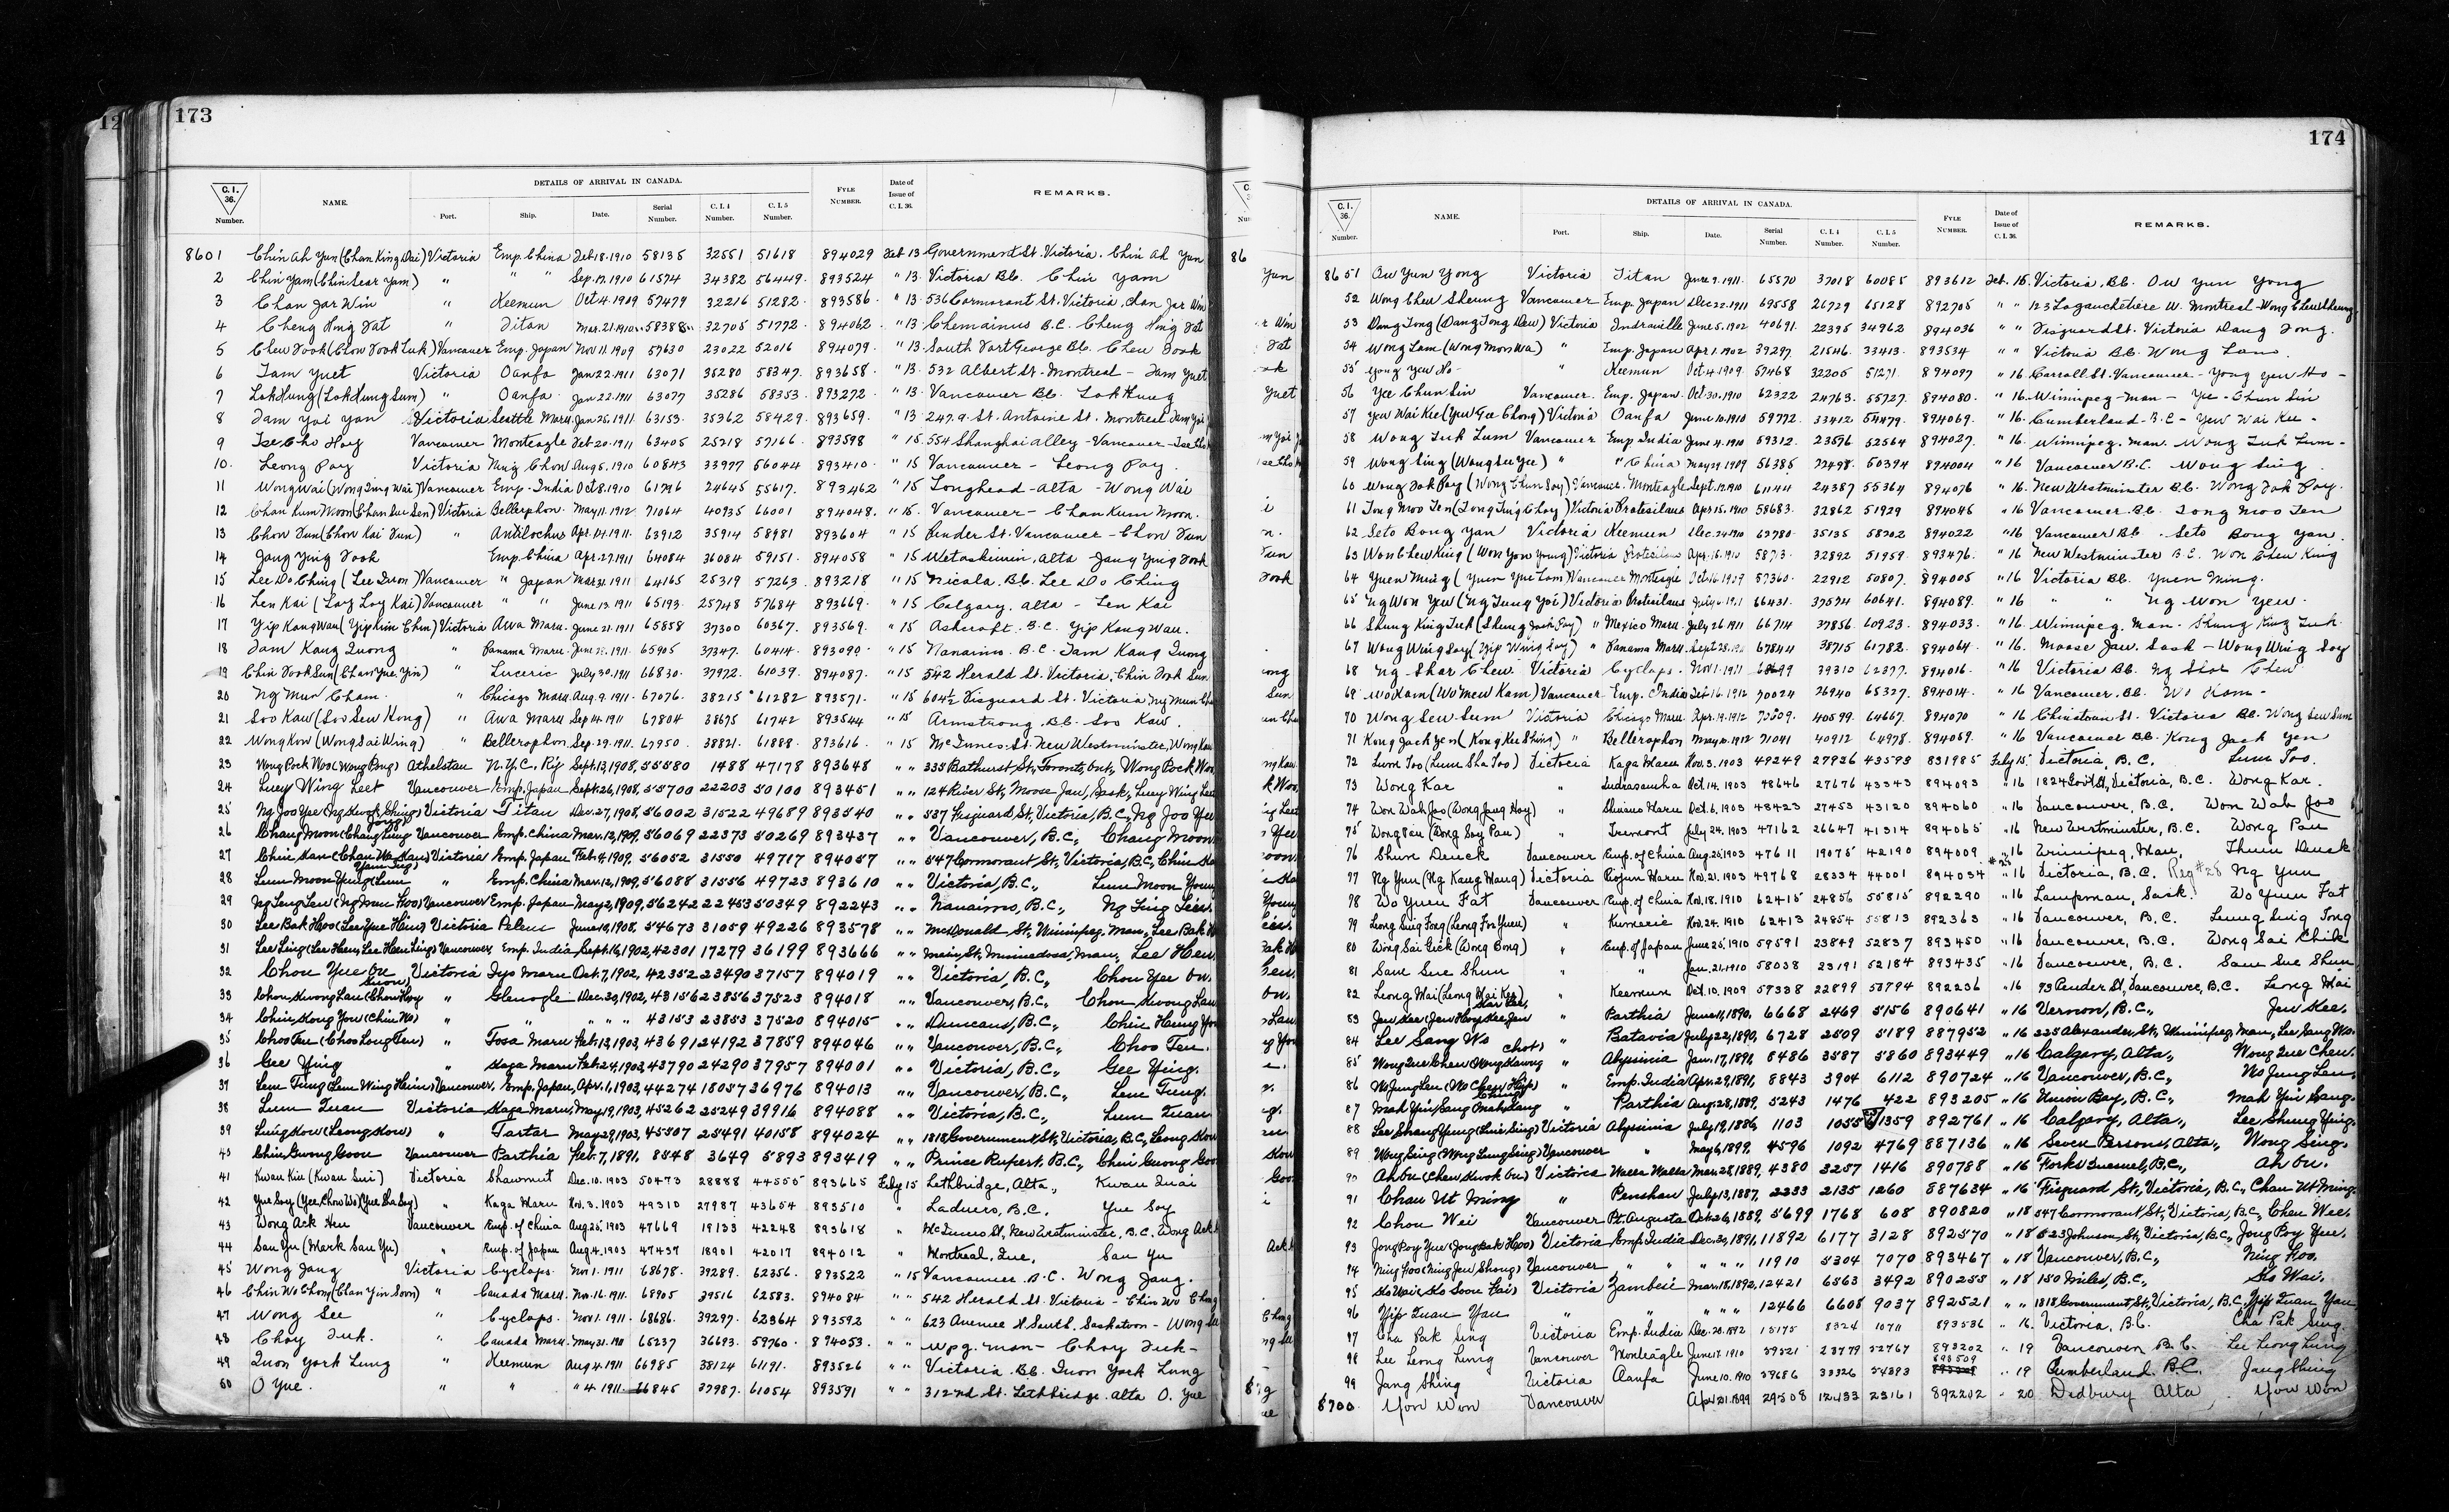 173
C.I. 36. Number. NAME. DETAILS OF ARRIVAL IN CANADA. Port. Ship. Date. Serial Number. C.I. 4 Number. C.I. 5 Number. FYLE NUMBER. Date of Issue of C.I. 36. REMARKS.
8601 Chin Ah Yun (Chan King Dai) Victoria Emp. China Feb 18. 1910 58135 32551 51618 894029 Feb 13 Government St. Victoria. Chin Ah Yun
2 Chin Yam (Chin Sear Yam) " " " Sep. 17. 1910 61574 34382 56449. 893524 " 13. Victoria BC. Chin Yam
3 Chan Jar Win " Keemun Oct 4. 1909 57479 32216 51282. 893586. " 13. 536 Cormorant St. Victoria, Chan Jar Win
4 Cheng Hing Fat " Titan Mar. 21. 1910 58388 32705 51772. 894062. " 13 Chemainus B.C. Cheng Hing Fat
5 Chew Fook (Chow Fook Luk) Vancouver Emp. Japan Nov 11. 1909 57630 23022 52016 894079. " 13. South Fort George BC. Chew Fook
6 Jam Yuet Victoria Oanfa Jan 22. 1911 63071 35280 58347. 893658. " 13. 532 Albert St. Montreal - Jam Yuet
7 Lok Hung (Lok Hung Sum) " Oanfa Jan 22. 1911 63077 35286 58353. 893272 " 13. Vancouver BC. Lok Hung
8 Jam Yai Yan Victoria Seattle Maru Jan 25. 1911 63153. 35362 58429. 893659. " 13 247.a. St. Antoine St. Montreal Jam Yai
9 Vancouver Monteagle Feb. 20. 1911 63405 25218 57166. 893598 " 15. 554 Shanghai Alley - Vancouver
10. Leong Poy Victoria Ning Chow Aug 5. 1910 60843 33977 56044 893410. " 15 Vancouver - Leong Poy.
11 Wong Wai (Wong Ting Wai) Vancouver Emp. India Oct 8. 1910 61796 24645 55617. 893462 " 15 Longhead - Alta - Wong Wai
12 Chan Kum Moon (Chan Sui Sen) Victoria Bellerphon. May 11. 1912 71064 40935 66001 894048. " 15. Vancouver - Chan Kum Moon.
13 Chow Fun (Chow Kai Fun) " Antilochus Apr. 14. 1911 63912 35914 58981 893604 " 15 Pender St. Vancouver - Chow Fun
14 Jang Ying Fook Emp. China Apr. 27. 1911 64084 36084 59151. 894058 " 15 Wetaskiwin, Alta - Jang Ying Fook
15 Lee Do Ching (Lee Quon) Vancouver " Japan Mar. 31. 1911 64165 25319 57263. 893218 " 15 Nicola. BC. Lee Do Ching
16 Len Kai (Loy Loy Kai) Vancouver " " June 13. 1911 65193. 25748 57684 893669. " 15 Calgary. Alta - Len Kai
17 Yip Kong Wau (Yip Kim Chin) Victoria Awa Maru. June 21. 1911 65858 37300 60367. 893569. " 15 Ashcroft. B.C. Yip Kong Wau.
18 Jam Kang Quong " Panama Maru 65905 37347. 60414. 893090. " 15 Nanaimo. B.C. Jam Kang Quong
19 Chin Fook Sun (Chan Yue Yin) " Luceric July 30. 1911 66830. 37972 61039. 894087. " 15 542 Herald St. Victoria. Chin Fook Sun.
20 Ng Mun Cham. " Chicago Maru. Aug. 9. 1911. 67076. 38215 61282 893571. " 15 604½ Fisguard St. Victoria Ng Mun Cham
21 Soo Kaw (Soo Sew Kong) " Awa Maru Sep 14. 1911 67804 38675 61742 893544 " 15 Armstrong. BC. Soo Kaw.
22 Wong Kow (Wong Sai Wing) " Bellerophon. Sep. 29. 1911. 67950. 38821. 61888. 893616. " 15 McInnes. St. New Westminster, Wong Kow
23 Wong Pock Woo (Wong Bing) Athelstan N.Y.C. Ry Sept. 13, 1908, 55580 1488 47178 893648 " " 335 Bathurst St., Toronto, Ont., Wong Pock Woo
24 Luey Wing Leet Vancouver Emp. Japan Sept. 26, 1908, 55700 22203 50100 893451 " " 124 River St, Moose Jaw, Sask., Luey Wing Leet
25 Ng Joo Yee (Ng Kwok Shing) Victoria Titan Dec. 27, 1908, 56002 31522 49689 893540 " " 537 Fisguard St, Victoria, B.C., Ng Joo Yee
26 Chang Moon (Chang Ling Jong) Vancouver Emp. China Mar. 12, 1909, 56069 22373 50269 893437 " " Vancouver, B.C., Chang Moon
27 Chin Kan (Chan Wa Kan) Victoria Emp. Japan Feb. 9, 1909, 56052 31550 49717 894057 " " 547 Cormorant St, Victoria, B.C., Chin Kan
28 Lum Moon Yung (Lum " Emp. China Mar. 12, 1909, 56088 31556 49723 893610 " " Victoria, B.C., Lum Moon Young
29 Vancouver Emp. Japan May 2, 1909, 56242 22453 50349 892243 " " Nanaimo, B.C., Ng Ling Lew.
30 Lee Bak Hoo (Lee Yue Hein) Victoria Peleus June 10, 1908, 54673 31059 49226 893578 " " McDonald St, Winnipeg, Man., Lee Bak Hoo
31 Lee Ling (Lee Hew, Lee Hew Ling) Vancouver Emp. India Sept. 16, 1902, 42301 17279 36199 893666 " " Main St, Minnedosa, Man., Lee Hew.
32 Chou Yue On Victoria Iyo Maru Oct. 7, 1902, 42352 23490 37157 894019 " " Victoria, B.C., Chou Yee On.
33 Chou Kwong Lau (Chou Hoy Suon) " Glenogle Dec. 30, 1902, 43156 23856 37523 894018 " " Vancouver, B.C., Chou Kwong Lau
34 Chin Kong You (Chin Wo) " " " " " 43153 23853 37520 894015 " " Duncans, B.C., Chin Hung You
35 Choo Ten (Choo Long Ten) " Tosa Maru Feb. 13, 1903, 43691 24192 37859 894046 " " Vancouver, B.C., Choo Ten.
36 Gee Ying " Kaga Maru Feb. 24, 1903, 43790 24290 37957 894001 " " Victoria, B.C., Gee Ying.
37 Lem Fung (Lem Wing Hein) Vancouver, Emp. Japan, Apr. 6, 1903, 44274 18057 36976 894013 " " Vancouver, B.C., Lem Fung.
38 Lum Quan Victoria Kaga Maru, May 19, 1903, 45262 25249 39916 894088 " " Victoria, B.C., Lum Quan
39 Lung Kow (Leong Kow) " Tartar May 29, 1903, 45507 25491 40158 894024 " " 1818 Government St, Victoria, B.C., Leong Kow
40 Chin Gwong Goon Vancouver Parthia Feb. 7, 1891, 8548 3649 5893 893419 " " Prince Rupert, B.C., Chin Guong Goon
41 Kwan Kiu (Kwan Sui) Victoria Shawmut Dec. 10. 1903 50473 28888 44555 893665 Feby 15 Lethbridge, Alta., Kwan Quai
42 Yue Soy (Yee Chow Wo) (Yue Sha Soy) " Kaga Maru Nov. 3. 1903 49310 27987 43654 893510 " Ladners, B.C. Yue Soy
43 Wong Ack Hew Vancouver Emp. of China Aug. 25, 1903 47669 19133 42248 893618 " McInnes St, New Westminster, B.C. Wong Ack H
44 San Yu (Mark San Yu) " Emp. of Japan Aug. 4. 1903 47437 18901 42017 894012 " Montreal, Que, San Yu
45 Wong Jang Victoria Cyclops. Nov 1. 1911 68678. 39289. 62356. 893522 " 15 Vancouver. B.C. Wong Jang.
46 Chin Wo Chong (Chan Yin Soon) " Canada Maru. Nov. 16. 1911. 68905 39516 62583. 894084 " " 542 Herald St. Victoria - Chin Wo Chong
47 Wong See " Cyclops. Nov 1. 1911. 68686. 39297. 62364 893592 " " 623 Avenue H South. Saskatoon - Wong See
48 Choy Luk. " Canada Maru. May 31. 1911 65237 36693. 59760. 894053. " " Wpg. Man - Choy Luk -
49 Quon York Lung " Keemun Aug 4. 1911 66985 38124 61191. 893526 " " Victoria. BC. Quon York Lung
50 O Yue. " " " 4. 1911. 66845 37987. 61054 893591 " " 312 2nd St. Lethbridge. Alta O. Yue
174
C.I. 36. Number. NAME. DETAILS OF ARRIVAL IN CANADA. Port. Ship. Date. Serial Number. C.I. 4 Number. C.I. 5 Number. FYLE NUMBER. Date of Issue of C.I. 36. REMARKS.
8651 Ow Yun Yong Victoria Titan June 9. 1911. 65570 37018 60085 893612 Feb. 15. Victoria. BC. Ow Yun Yong
52 Wong Chew Sheung Vancouver Emp. Japan Dec. 22. 1911 69558 26729 65128 892705 " " 123 Lagauchetiere W. Montreal - Wong Chew Sheung
53 Dang Tong (Dang Tong Dew) Victoria Indraville June 5. 1902 40691. 22395 34962 894036 " " Fisguard St. Victoria Dang Tong.
54 Wong Lam (Wong Mon Wa) " Emp. Japan Apr. 1. 1902 39297. 21546. 33413. 893534 " " Victoria BC. Wong Lam.
55 Yong Yew Ho - " Keemun Oct. 4. 1909. 57468 32205 51271. 894097 " 16. Carrall St. Vancouver. - Yong Yew Ho -
56 Yee Chun Sin Vancouver. Emp. Japan Oct. 30. 1910 62322 24763. 55727. 894080. " 16. Winnipeg - Man - Yee - Chun Sin
57 Yew Wai Kee (Yew Gee Chong) Victoria Oanfa June 10. 1910 59772 33412 54479 894069. " 16. Cumberland. B.C - Yew Wai Kee -
58 Wong Luk Lum Vancouver Emp India June 4. 1910 59312. 23596 52564 894027. " 16. Winnipeg. Man. Wong Luk Lum -
59 Wong Sing (Wong See Yee) " " China May 29. 1909 56385 22498. 50394 894004 " 16 Vancouver B.C. Wong Sing
60 Wong Fok Poy (Wong Chun Soy) Vancouver. Monteagle Sept. 17. 1910 61144 24387 55364 894076 " 16. New Westminster BC. Wong Fok Poy.
61 Tong Moo Ten (Tong Ting Choy) Victoria Protesilaus Apr. 15. 1910 58683. 32862 51929 894046 " 16 Vancouver. BC. Tong Moo Ten
62 Seto Bong Yan Victoria Keemun Dec. 24. 1910 62780. 35135 58202 894022 " 16 Vancouver BC. - Seto Bong Yan.
63 Won Chew King (Won Yow Young) Victoria Protesilaus Apr. 16. 1910 58713. 32892 51959. 893476. " 16 New Westminster B.C. Won Chew King
64 Yuen Ming (Yuen Yue Lam) Vancouver Monteagle Oct. 16. 1909 57360. 22912 50807. 894005 " 16 Victoria BC. Yuen Ming.
65 Ng Won Yew (Ng Tung Yoi) Victoria Protesilaus 66431. 37574 60641. 894089. " 16 " " Ng Won Yew.
66 Shung King Luk " Mexico Maru. July 26 1911 66714 37856 60923. 894033. " 16. Winnipeg. Man - Shung King Luk
67 Wong Wing Soy (Yip Wing Soy) " Panama Maru 67844 38715 61782. 894064. " 16. Moose Jaw. Sask - Wong Wing Soy
68 Ng Shar Chew Victoria Cyclops. Nov 1. 1911 39310 62377. 894016. " 16 Victoria BC. Ng Shar Chew
69 Wo Kam (Wo Mew Kam) Vancouver Emp. India Feb. 16. 1912 70024 26940 65327. 894014. " 16 Vancouver. BC. Wo Kam -
70 Wong Sew Sum Victoria Chicago Maru Apr. 19. 1912 40599. 64667. 894070 " 16 Chinatown St. Victoria BC. Wong Sew Sum
71 Kong Jack Yen (Kong Kee Shing) " Bellerophon May 10. 1912 71041 40912 64978. 894069. " 16 Vancouver BC. Kong Jack Yen
72 Lum Too (Lum Sha Too) Victoria Kaga Maru Nov. 3. 1903 49249 27926 43593 831985 Feby 15 Victoria, B.C. Lum Too.
73 Wong Kar " Indrasamha Oct. 14. 1903 48646 27676 43343 894093 " 16 1824 Govt St, Victoria, B.C. Wong Kar.
74 Won Wah Joo (Wong Jung Hoy) " Shinano Maru Oct. 6. 1903 48423 27453 43120 894060 " 16 Vancouver, B.C. Won Wah Joo
75 Wong Pau (Wong Soy Pau) " Tremont July 24. 1903 47162 26647 41314 894065 " 16 New Westminster, B.C. Wong Pau
76 Shum Deuck Vancouver Emp. of China Aug. 25. 1903 47611 19075 42190 894009 " 16 Winnipeg, Man, Shum Deuck
77 Ng Yun (Ng Kang Wang) Victoria Riojun Maru Nov. 21. 1903 49768 28334 44001 894034 " 16 Victoria, B.C. Reg #28 Ng Yun
78 Wo Yuen Fat Vancouver Emp. of China Nov. 18. 1910 62415 24856 55815 892290 " 16 Lampman, Sask. Wo Yuen Fat
79 Leong Sing Fong (Leong Foo Yuen) " Kumeric Nov. 24. 1910 62413 24854 55813 892363 " 16 Vancouver, B.C. Leung Sing Tong
80 Wong Sai Gick (Wong Bong) " Emp. of Japan June 25. 1910 59591 23849 52837 893450 " 16 Vancouver, B.C. Wong Sai Chik
81 Sam Sue Shun " " Jan. 21. 1910 58038 23191 52184 893435 " 16 Vancouver, B.C. Sam Sue Shun
82 Leong Mai (Leong Mai Kee) " Keemun Oct. 10. 1909 57338 22899 50794 892236 " 16 93 Pender St, Vancouver, B.C. Leong Mai
83 " Parthia June 11, 1890, 6668 2469 5156 890641 " 16 Vernon, B.C., Jew Kee.
84 Lee Sang Wo " Batavia July 22, 1890, 6728 2509 5189 887952 " 16 225 Alexander St, Winnipeg, Man., Lee Sang Wo.
85 Wong Que Chew " Abyssinia Jan. 17, 1891, 8486 3587 5860 893449 " 16 Calgary, Alta., Wong Que Chew.
86 " Emp. India Apr. 29, 1891, 8843 3904 6112 890724 " 16 Vancouver, B.C., Mo Jung Len
87 " Parthia Aug. 28, 1889, 5243 1476 422 893205 " 16 Union Bay, B.C., Mah Yin Sang.
88 Lee Shung Yung (Louie Sing) Victoria Abyssinia July 19, 1886, 1103 1055 1359 892761 " 16 Calgary, Alta., Lee Shung Ying.
89 Wong Sing (Wong Lung Sing) Vancouver " May 6, 1889, 4596 1092 4769 887136 " 16 Seven Persons, Alta., Wong Sing.
90 Ah On (Chew Kwok On) Victoria Walla Walla Mar. 28, 1889, 4380 3257 1416 890788 " 16 Forks Quesnel, B.C., Ah On.
91 Chan Ut Ming " Penshaw July 13, 1887, 2233 2135 1260 887634 " 16 Fisguard St., Victoria, B.C., Chan Ut Ming.
92 Chou Wei Vancouver Pt. Augusta Oct. 26, 1889, 5699 1768 608 890820 " 18 547 Cormorant St, Victoria, B.C., Chew Wee.
93 Jong Poy Yue (Jong Bak Hoo) Victoria Emp. India Dec. 30, 1891, 11892 6177 3128 892570 " 18 523 Johnson St, Victoria, B.C., Jong Poy Yue.
94 Ning Hoo (Ning Jew Shong) Vancouver " " " " " 11910 5304 7070 893467 " 18 Vancouver, B.C., Ning Hoo.
95 Ko Wai (Ko Soon Fai) Victoria Zambesi Mar. 18, 1892, 12421 6563 3492 890255 " 18 150 Miles, B.C., Ko Wai.
96 Yip Quan Yau " " " " " 12466 6608 9037 892521 " " 1818 Government St, Victoria, B.C., Yip Quan Yau
97 Cha Pak Sing Victoria Emp. India Dec. 20. 1892 15175 8324 10711 893536 " 16. Victoria, B.C. Cha Pak Sing.
98 Lee Leong Ling Vancouver Monteagle June 17. 1910 59521 23779 52767 893202 " 19 Vancouver B.C. Lee Leong Ling
99 Jang Shing Victoria Oanfa June 10. 1910 59686 33326 54393 893509 " 19 Cumberland B.C. Jang Shing
8700. Yow Won Vancouver Apr 21. 1899 29508 12433 23161 892202 " 20 Didbury Alta Yow Won